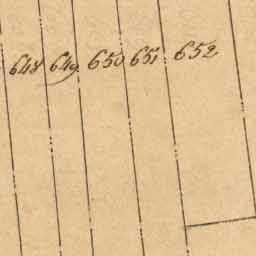 648 649 650 651 652